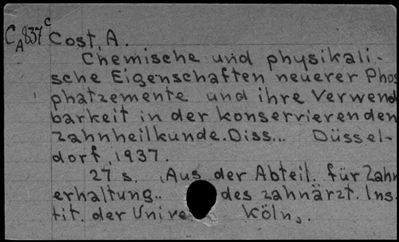 CA837c Cost, A.
Chemische und physikali-
sche Eigenschaften neuerer Phos
phatzemente und ihre Verwend
barkeit in der konservierenden
Zahnheilkunde. Diss... Düssel-
dorf, 1937.
27 s. Aus der Abteil. für Zahn
erhaltung.. des zahnärzt. Ins.
tit. der Unive Köln.